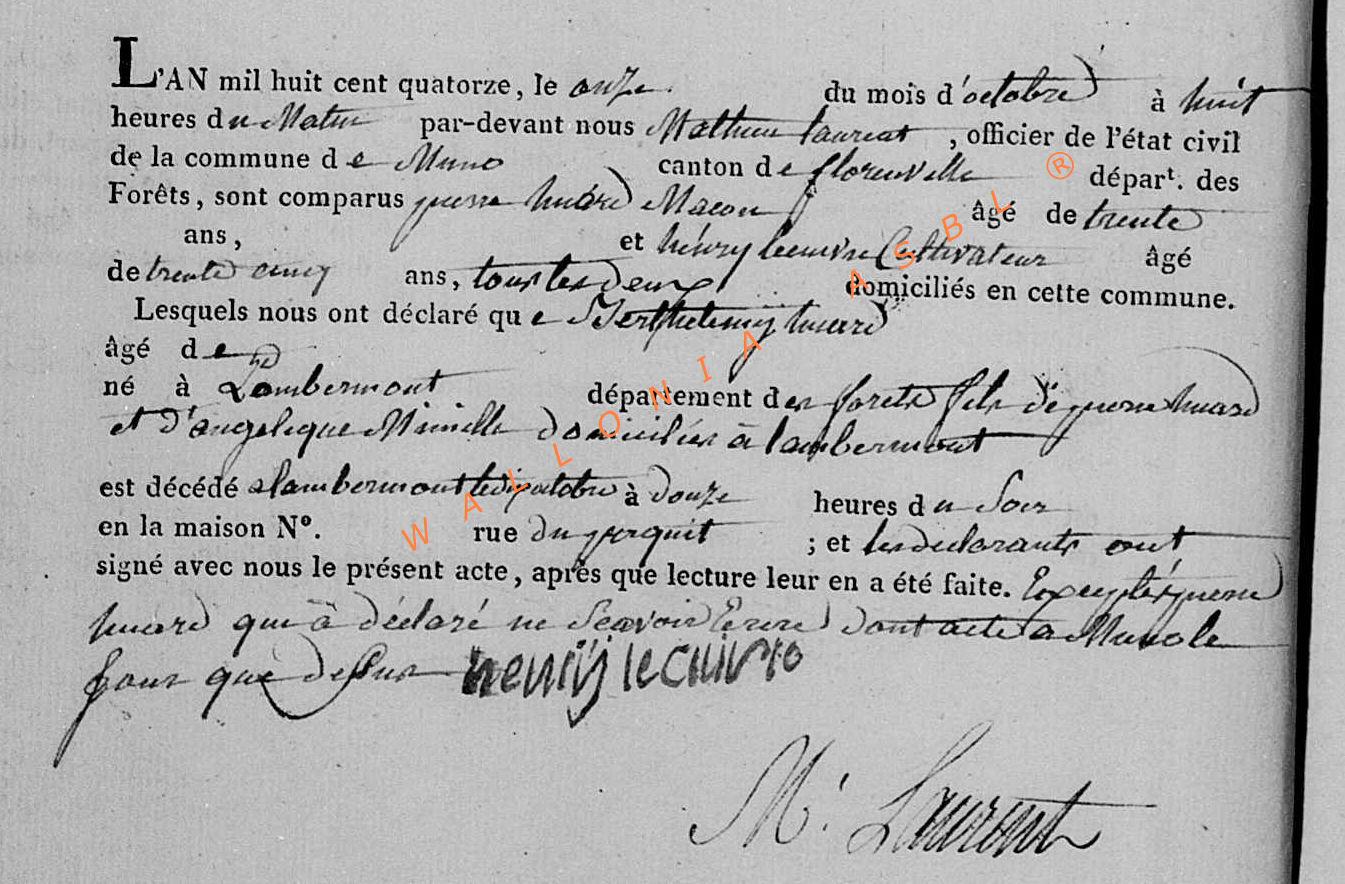 L'AN mil huit cent quatorze, le onze du mois d'octobre à huit
heures du Matin par-devant nous Mathieu laurent, officier de l'état civil
de la commune de Muno canton de florenville départ. des
Forêts, sont comparus pierre huard Macon âgé de trente
ans, et hénry lecuivre Cultivateur âgé
de trente cinq ans, tous les deux domiciliés en cette commune.
Lesquels nous ont déclaré que Berthelemÿ huard
âgé de
né à Lambermont département des forets fils de pierre huard
et d'angelique domiciliés à lambermont
est décédé a lambermont le dix octobre à douze heures du Soir
en la maison N°. rue du ; et les declarants ont
signé avec nous le présent acte, après que lecture leur en a été faite. Exepté pierre
huard qui à déclaré ne Scavoir Ecrire dont acte a Muno le
jour que dessus henrÿ lecuivre
M. Laurent
WALLONIA ASBL ®